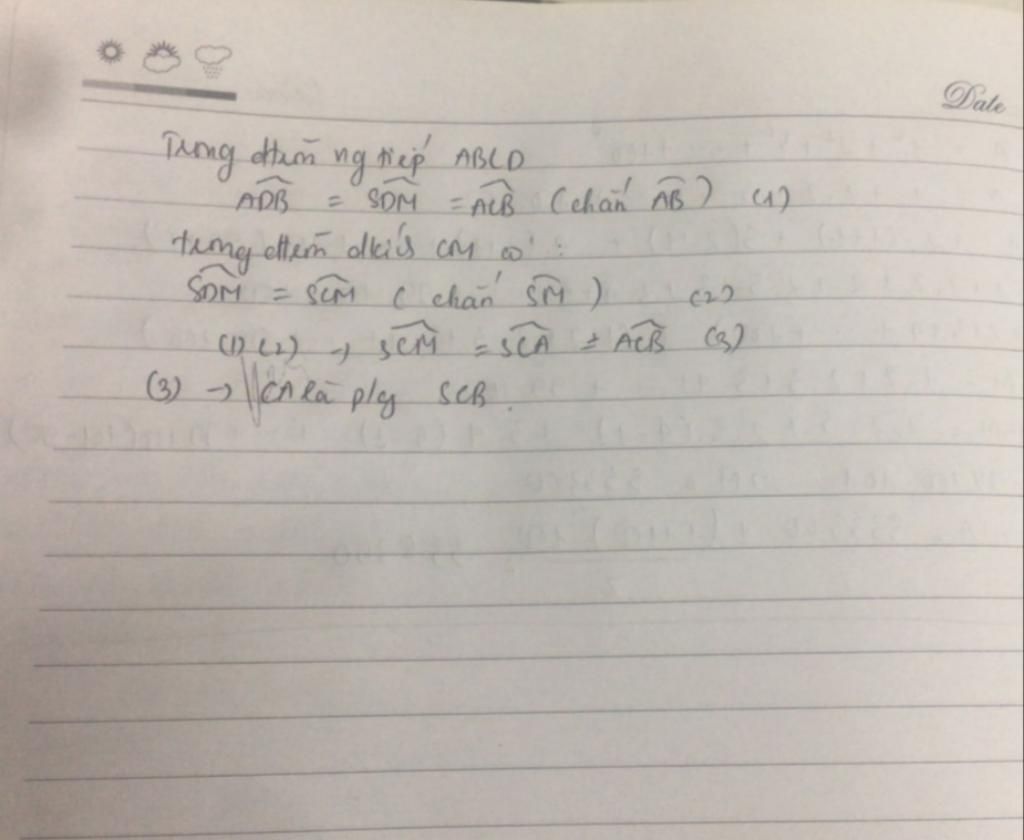 Date
Trong đtròn ng tiếp ABCD
ADB = SDM = ACB (chắn AB) (1)
trong đtròn đkính CM có :
SDM = SCM ( chắn SM ) (2)
(1) (2) → SCM = SCA = ACB (3)
(3) → CA là p/g SCB.